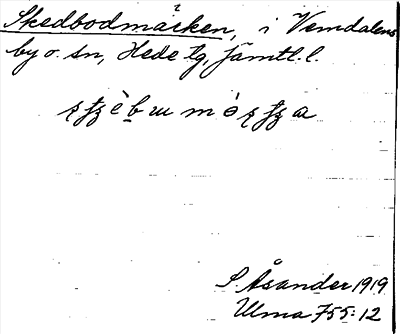 Skedbodmåsken, i Vemdalens
by o. sn, Hede tg, Jämtl. l.
S. Åsander 1919
Ulma 755:12